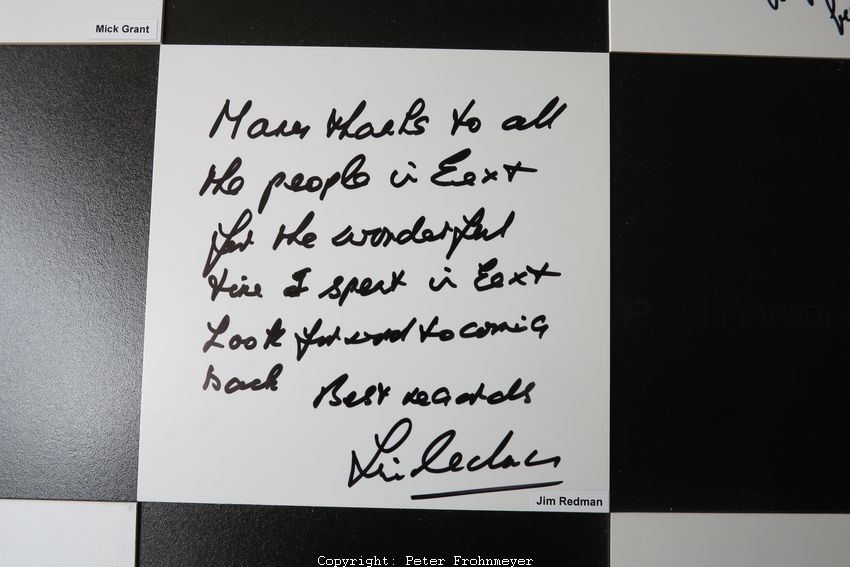 Mick Grant
Many thanks to all
the people in Eext
for the wonderful
time I spent in Eext
Look forward to coming
back Best regards
Jim Redman
Jim Redman
Copyright: Peter Frohnmeyer